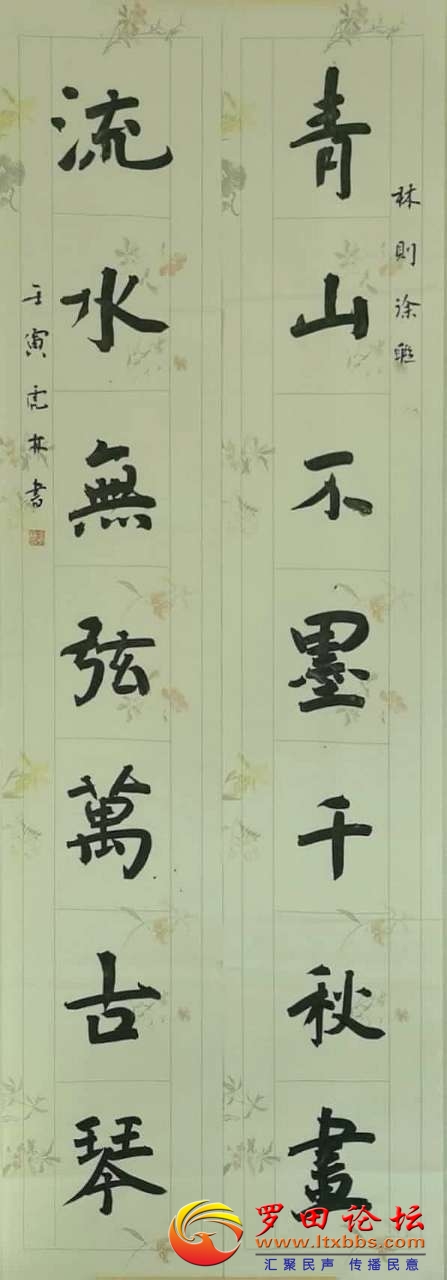 林則徐聯
青山不墨千秋畫
流水無弦萬古琴
壬寅虎林書
罗田论坛
www.ltxbbs.com
汇聚民声 传播民意